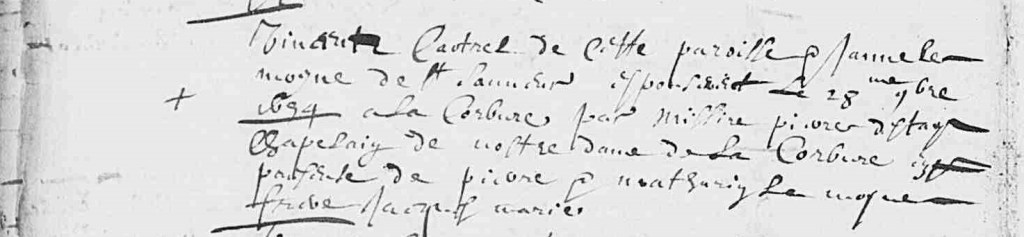 Vincente Castrel de Ceste paroisse & Janne le
moyne de st Sauveur espouserent le 28 me 9bre
1654 a la Corbure par Missire pierre
Chapelain de nostre dame de la Corbure en
presence de pierre & mathurin le moyne
frere Jacques marie